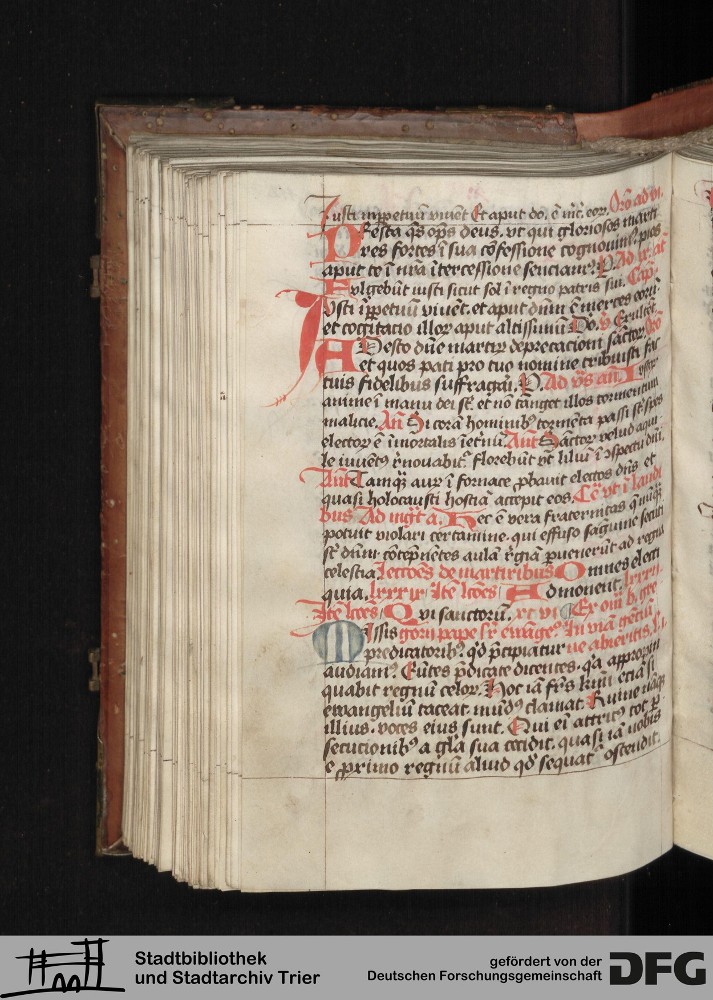 Justi inppetuū viuēt Et aput do. ē m̄c. eor. Orō ad vi.
PResta q̄s op̄s deus. vt qui gloriosos marti
res fortes ī sua cōfessione cognouim⁹. pios
aput te ī nr̄a ītercessione senciam⁹. P. Ad ix. añ
Fulgebūt iusti sicut sol ī regno patris sui. Cap̄.
Justi īppetuū viuēt. et aput dūm ē merces eorū.
et cogitacio illor aput altissimū Do. v̄. Exultēt
ADesto dn̄e martirꝝ deprecacioni sāctoꝝ. Orō
et quos pati pro tuo nomine tribuisti fac
tuis fidelibus suffragari. P. Ad vs̄ añ. Istoꝝ
anime ī manu dei st̄. et nō tanget illos tormentum
malicie. Añ Si corā hominib⁹ tormēta passi st̄ spes
electoꝝ ē īmortalis īetnū. Añt Sāctoꝝ velud aqui
le iuuēt⁹ r̄nouabit. florebūt vt liliū ī ↄspectu dūi.
Añt Tamq̄ aurꝝ ī fornace ꝓbauit electos dn̄s et
quasi holocausti hostiā accepit eos. Cēt vt ī laudi
bus Ad mg̅t a. Hec ē vera fraternitas q̄ nūq̄
potuit violari certamine. qui effuso sāguine secuti
st̄ dūm. cōtēpnētes aulā r̄giā puenerūt ad regna
celestia. Lecciōes de martiribus Omnes electi
quia. lxxxix. Itē lcōes Admonent. lxxxii.
Itē lcōes. Qui sanctorū. xcvi Ex om̄ b. gre
MIssis gorii pape sr̄ ewāge⁹. In viā gēciū
predicatorib⁹. qd̄ p̄cipiatur ne abieritis. L. i.
audiam⁹. Eūtes p̄dicate dicentes. q̄a appropin
quabit regnū celoꝝ. Hoc iā frs̄ kmī eciā si
ewangeliū taceat. mūd⁹ clamat. Ruine nāq̄
illius. voces eius sunt. Qui ei attrit⁹ tot p̄
secutionib⁹ a glā sua cecidit. quasi iā nobis
e ꝓximo regnū aliud qd̄ sequat ostendit.
Stadtbibliothek
und Stadtarchiv Trier
gefördert von der
Deutschen Forschungsgemeinschaft
DFG